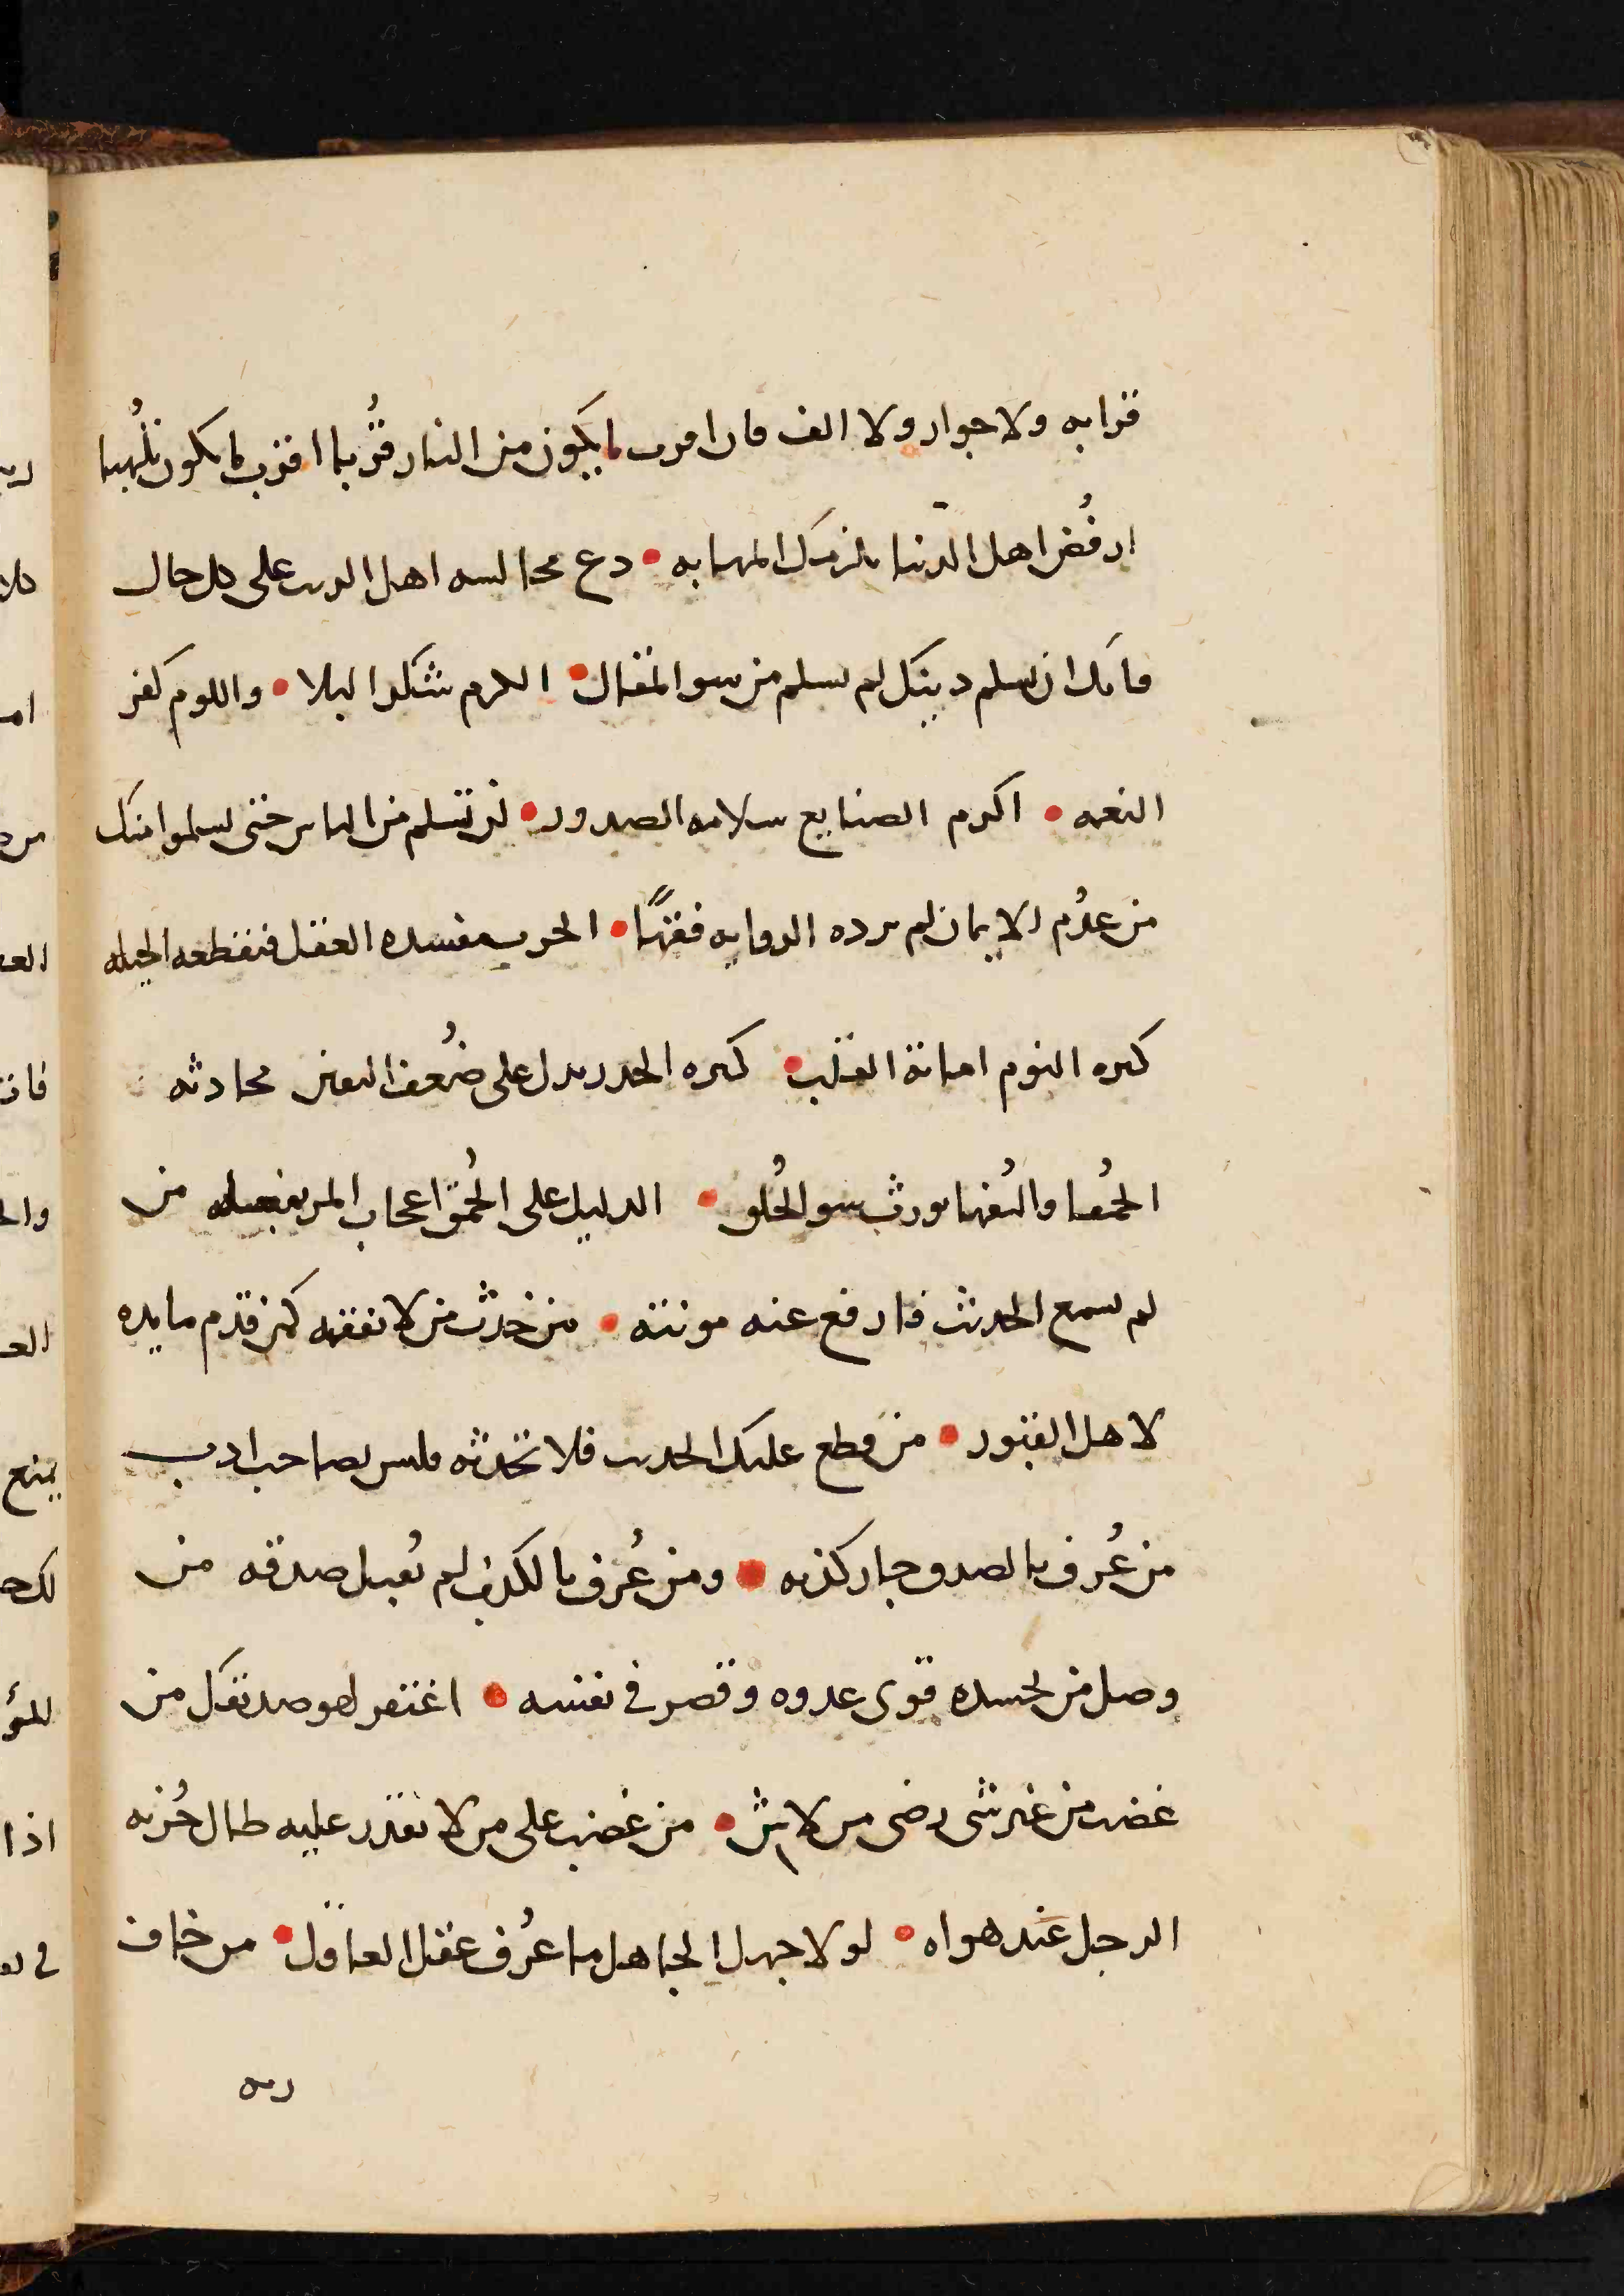 قرابه ولا جوار ولا الف فان اقرب ما يكون من النار قُربا اقرب ما يكون تلهبا
ارفُض اهل الدنيا تلزمك المهابه • دع مجالسه اهل الريب على كل حال
فانك ان تسلم دينك لم تسلم من سو المقال • الكرم شكر البلا • واللوم كفر
النعمه • اكرم الصنايع سلامه الصدور • لن تسلم من الناس حتى يسلموا منك
من عدُم الايمان لم يزده الروايه فقهًا • الحرب مفسده العقل فتقطعه الحيله
كثره النوم اماتة القلب • كثره الحذر يدل على ضُعف اليقين محادثه
الحُمقا والسُفها يورث سو الخُلق • الدليل على الحُمق اعجاب المر بفضله من
لم يسمع الحديث فارفع عنه مونته • من حدث من لا يفقهه كمن قدم مايده
لاهل القبور • من قطع عليك الحديث فلا تحدثه فليس بصاحب ادب
من عُرف بالصدق جاز كذبه • ومن عُرف بالكذب لم يُقبل صدقه من
وصل من يحسده قوى عدوه وقصر في نفسه • اغتفر لهو صديقك من
غضب من غير شى رضى من لا شى • من غضب على من لا يقدر عليه طال حُزنه
الرجل عند هواه • لولا جهل الجاهل ما عُرف عقل العاقل • من خاف
ربه